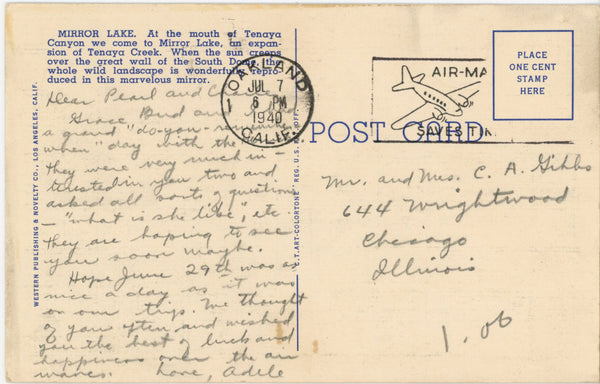 MIRROR LAKE. At the mouth of Tenaya
Canyon we come to Mirror Lake, an expan-
sion of Tenaya Creek. When the sun creeps
over the great wall of the South Dome, the
whole wild landscape is wonderfully repro-
duced in this marvelous mirror.
Dear Pearl and
Grace, Bud and I had
a grand "do-you-remember
when" day with the
they were very much in-
terested in you two and
asked all sorts of questions
- "what is she like", etc.
They are hoping to see
you soon maybe.
Hope June 29th was as
nice a day as it was
on our trip. We thought
of you often and wished
you the best of luck and
happiness over the air
waves. Love, Adele
WESTERN PUBLISHING & NOVELTY CO., LOS ANGELES, CALIF.
C.T. ART-COLORTONE REG. U.S. PAT. OFF.
OAKLAND
1
JUL 7
6 PM
1940
CALIF.
AIR-MA
SAVES TIM
POST CARD
PLACE
ONE CENT
STAMP
HERE
Mr. and Mrs. C. A. Gibbs
644 Wrightwood
Chicago
Illinois
1.00